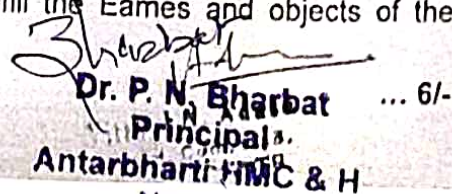 the Eames and objects of the
Dr. P. N. Bharbat ... 6/-
Principal
Antarbharti HMC & H